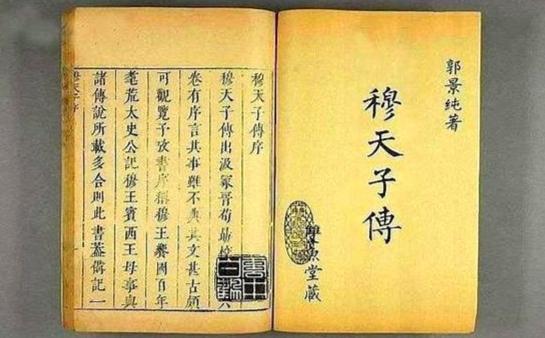 郭景純著
穆天子傳
魚堂藏
穆天子傳序
穆天子傳出汲冢晉荀勗校六
卷有序言其事雖不典其文甚古頗
可觀覽予攷書序稱穆王饗國百年
耄荒太史公記穆王賓西王母事與
諸傳說所載多合則此書蓋備記一